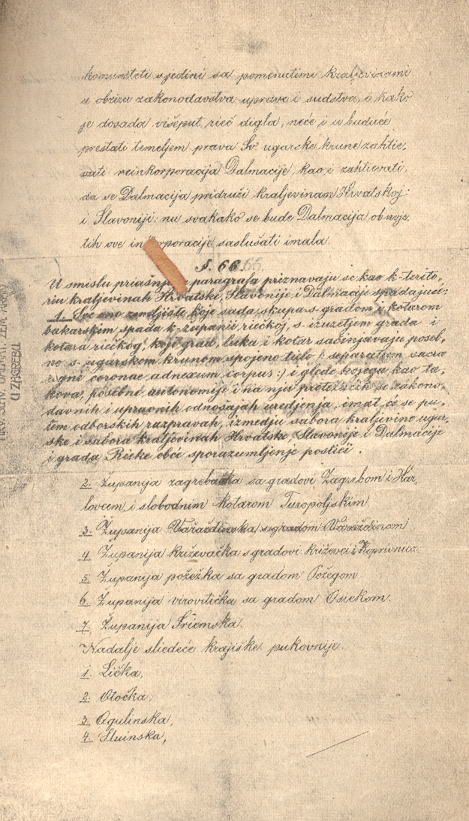 komunšteti sjedini sa pomenutimi kraljevinami
u obziru zakonodavstva uprave i sudstva, i kako
je dosada višeput rieč digla, neće i u buduće
prestati temeljem prava Sv. ugarske krune zahtie-
vati reinkorporaciju Dalmacije, kao i zahtievati,
da se Dalmacija pridruži kraljevinam Hrvatskoj
i Slavoniji: nu svakako se bude Dalmacija ob uvje-
tih ove inkorporacije saslušati imala.
§. 66. 66.
U smislu priašnjega paragrafa priznavaju se kao k terito-
riu kraljevinah Hrvatske, Slavonije i Dalmacije spadajuć:
1. Sve ono zemljište koje sada skupa s gradom i kotarom
bakarskim spada k županii riečkoj, s izuzetjem grada i
kotara riečkog, koji grad, luka i kotar sačinjavaju poseb-
no s ugarskom krunom spojeno tielo (: separatum sacra
regni coronae adnexum corpus:) i glede kojega kao ta-
kova, posebne autonomije i na nju protežućih se zakono-
davnih i upravnih odnošajah uredjenja, imat će se pu-
tem odborskih razpravah, izmedju sabora kraljevine ugar-
ske i sabora kraljevinah Hrvatske, Slavonije i Dalmacije
i grada Rieke obće sporazumljenje postići.
2. Županija zagrebačka sa gradovi Zagrebom i Kar-
lovcem i slobodnim kotarom Turopoljskim
3. Županija Varaždinska s gradom Varaždinom
4. Županija križevačka s gradovi Križevci i Koprivnica
5. Županija požežka sa gradom Požegom
6. Županija virovitička sa gradom Osiekom
7. Županija Sriemska.
Nadalje sliedeće krajiške pukovnije.
1. Lička,
2. Otočka,
3. Ogulinska,
4. Sluinska,
U ZAGREBU